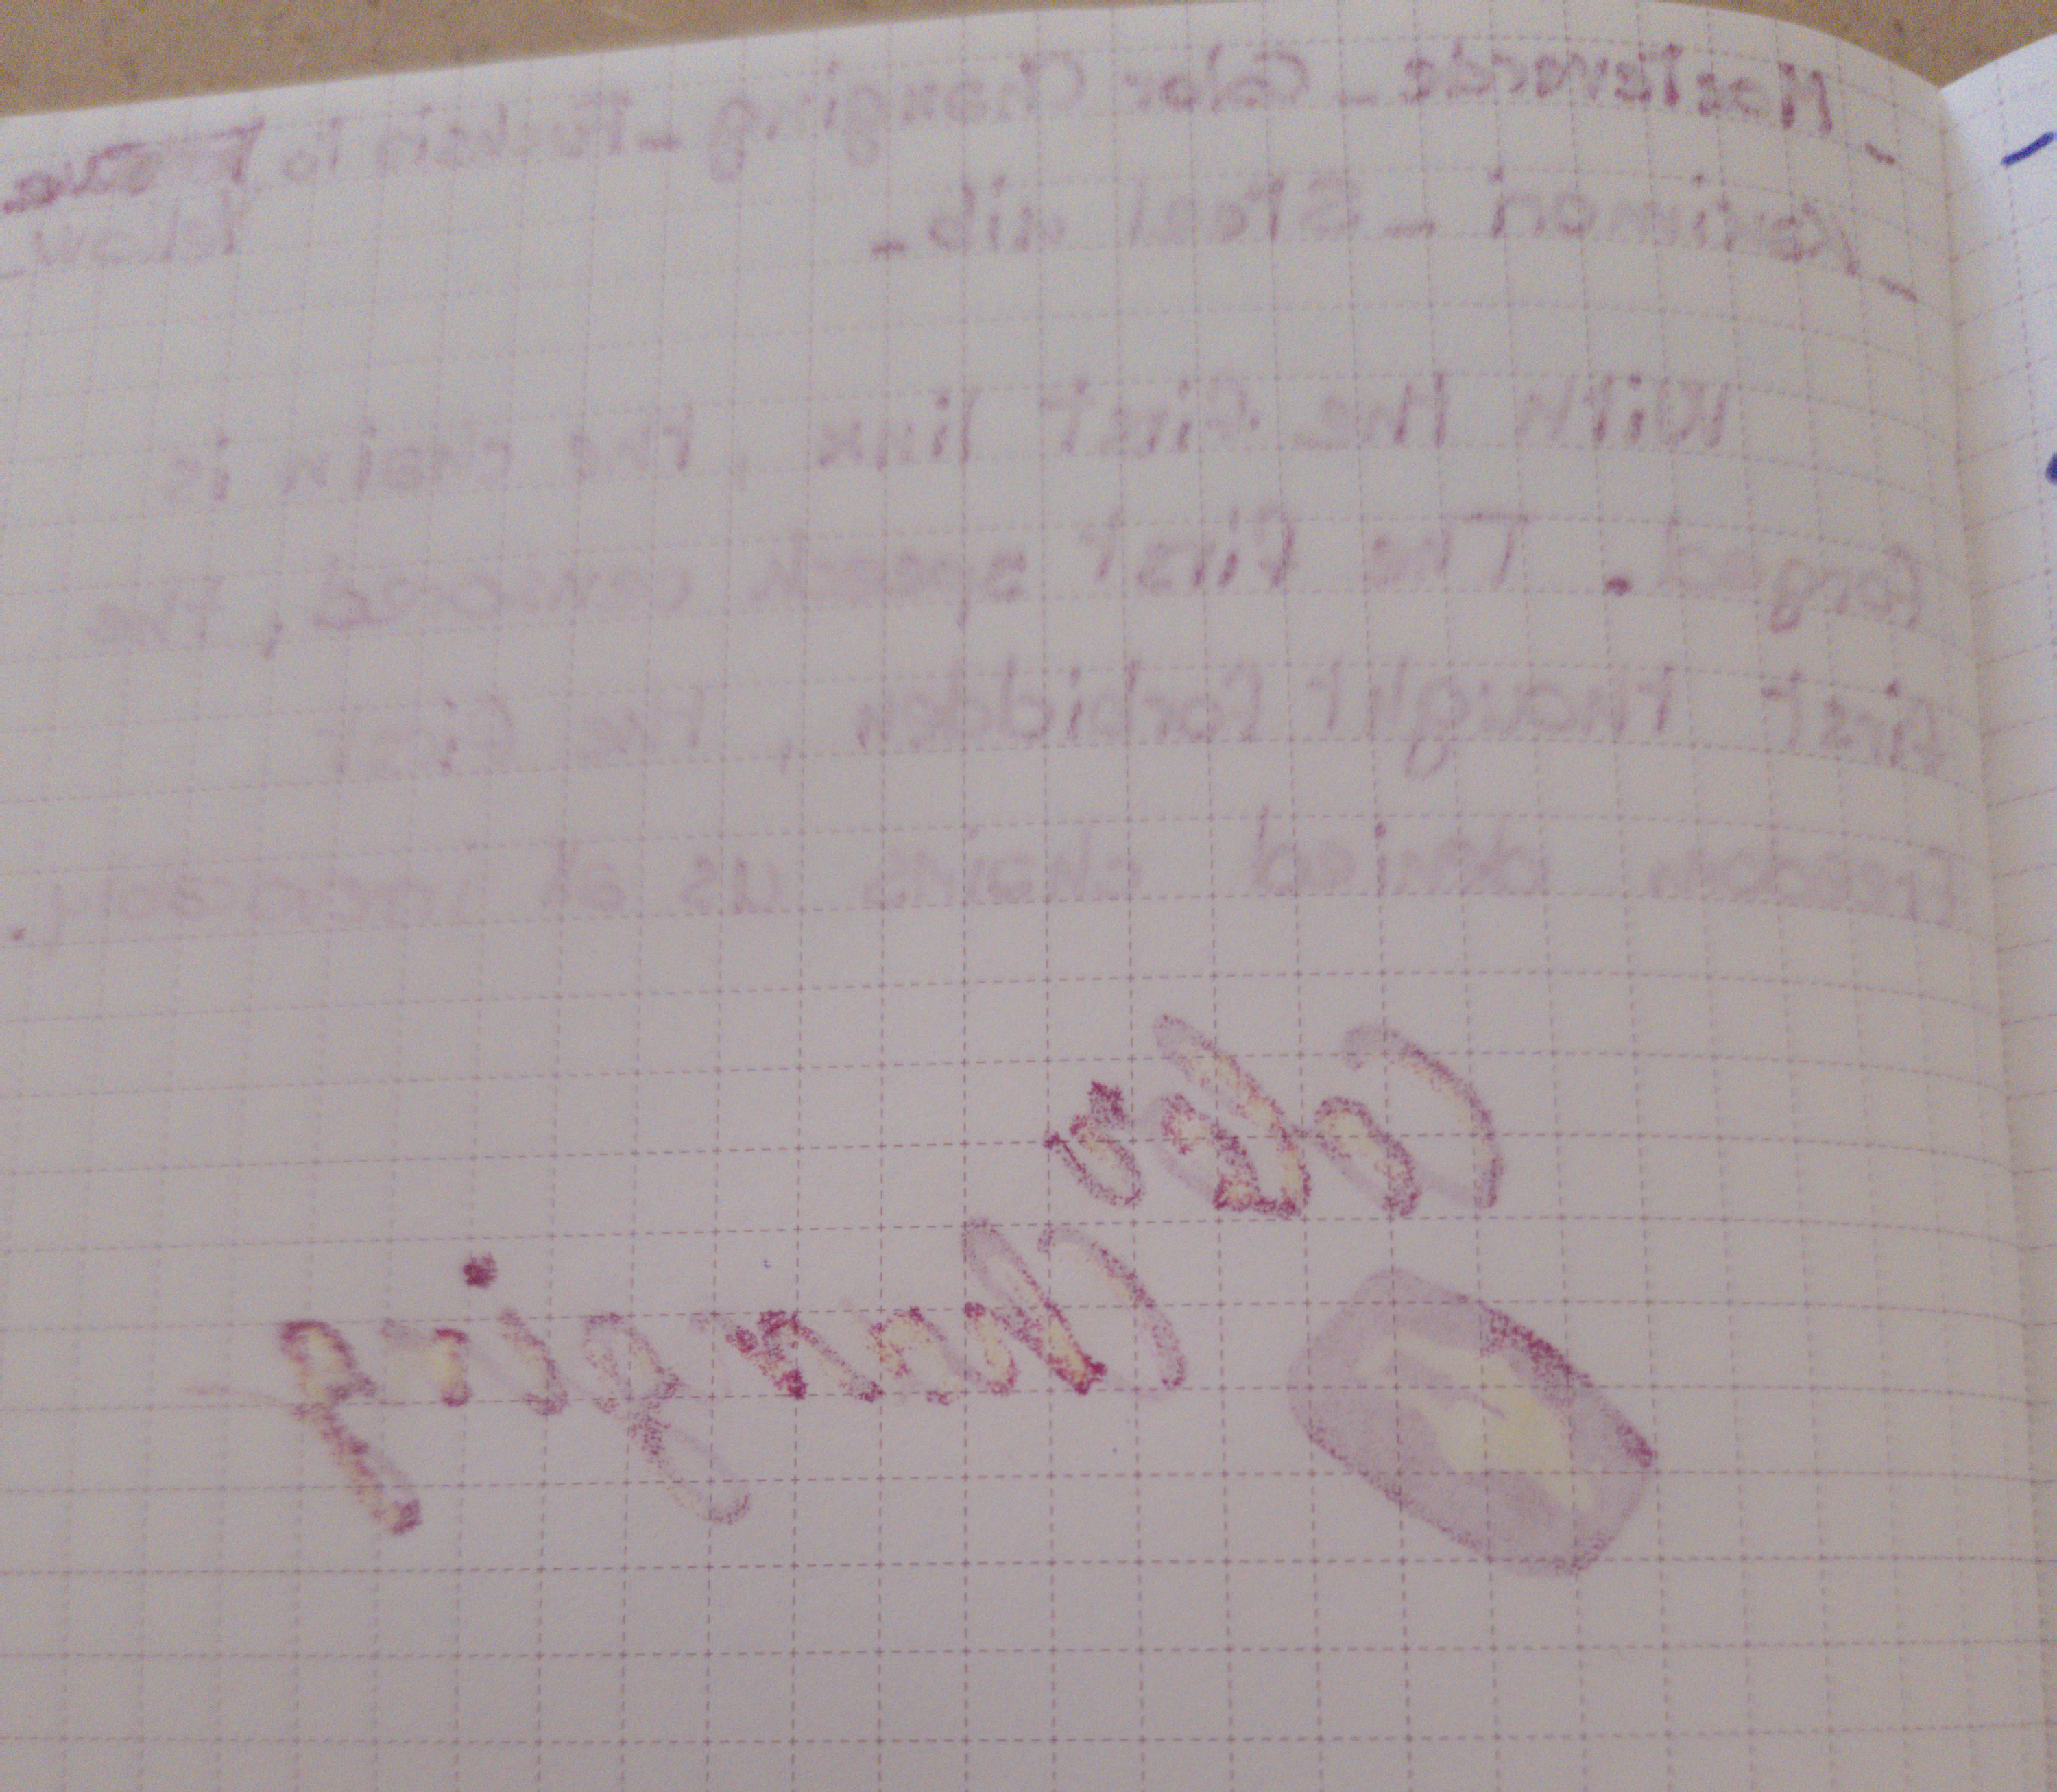 - Monteverde - Color Changing - Fuchsia to
Yellow -
- Kenimon - Steel nib -
With the first link, the chain is
forged. The first speech censored, the
first thought forbidden, the first
freedom denied chains us al irrevocably.
Color
Changing